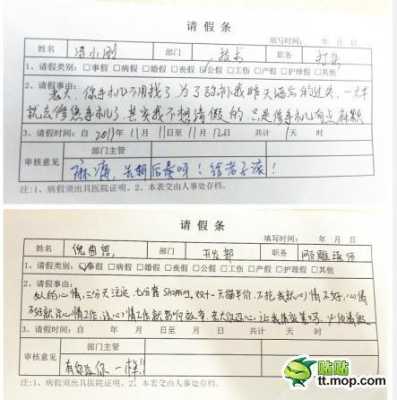 请假条
填写时间: 年 月 日
姓名 小刚 部门 技术 职务
1、请假类别:□事假 □病假 □婚假 □丧假 □公假 □工伤 □产假 □护理假 □其他
2、请假事由:
老大,你手机不用找了,为了弥补我昨天酒后的过失,一大早
就去修您手机了,其实我不想请假的,只是修手机有点麻烦
3、请假时间:自2011年11月11日至11月12日 共计1天 时
审核意见 部门主管
麻痹,关机后盖呀!给老子滚!
注:1、病假须出具医院证明。2、本表交由人事处存档。
请假条
填写时间: 年 月 日
姓名 部门 职务
1、请假类别:□事假 □病假 □婚假 □丧假 □公假 □工伤 □产假 □护理假 □其他
2、请假事由:
女人的心情,三分天注定,七分靠shopping,双十一天猫半价,不抢我就心情不好,心情
不好就没心情工作,没心情工作就影响效率
3、请假时间:自 年 月 日至 月 日 共计 天 时
审核意见 部门主管
有你这样!!
注:1、病假须出具医院证明。2、本表交由人事处存档。
猫扑
tt.mop.com